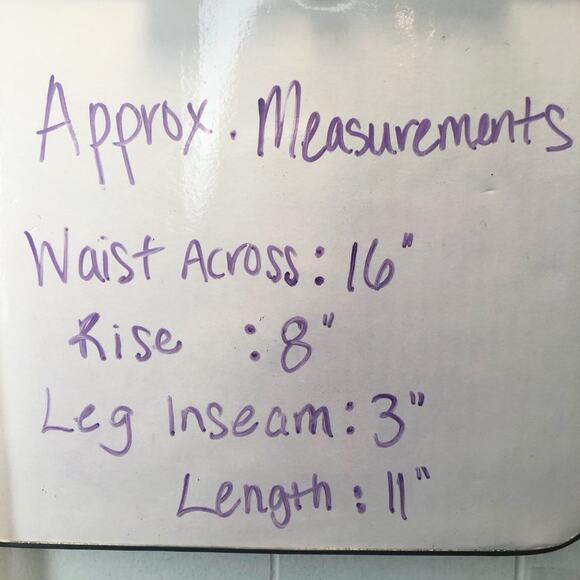 Approx. Measurements
Waist Across: 16"
Rise : 8"
Leg Inseam: 3"
Length: 11"